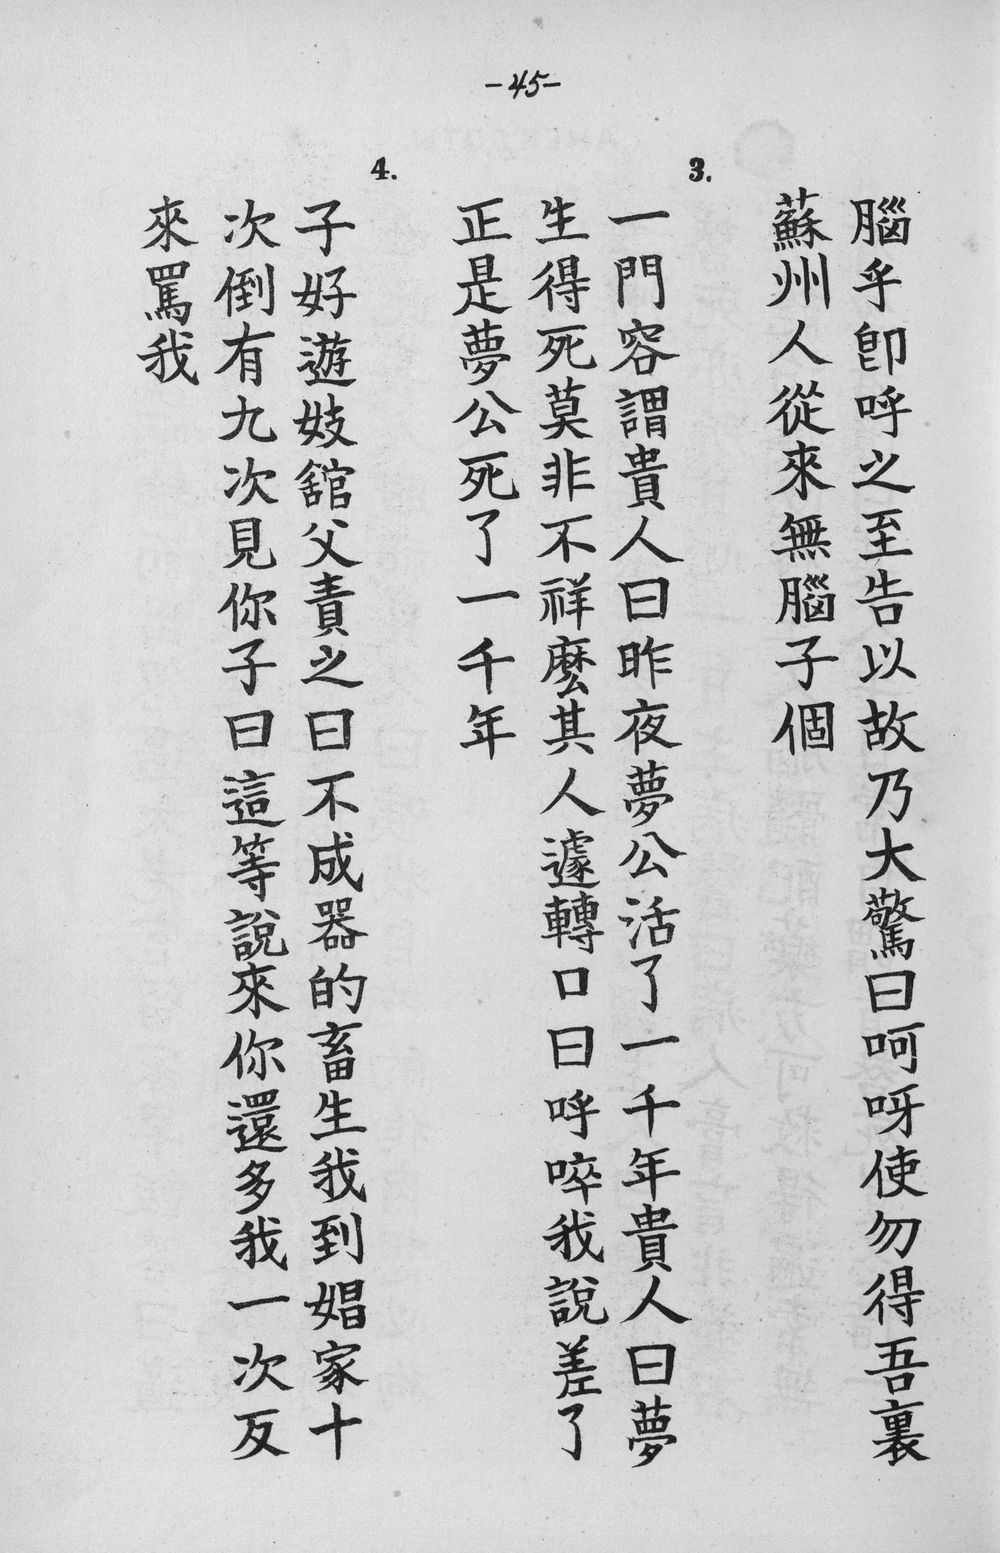 -45-
腦乎卽呼之至告以故乃大驚曰呵呀使勿得吾裏
蘇州人從來無腦子個
3.
一門容謂貴人曰昨夜夢公活了一千年貴人曰夢
生得死莫非不祥麼其人遽轉口曰呼啐我說差了
正是夢公死了一千年
4.
子好遊妓舘父責之曰不成器的畜生我到娼家十
次倒有九次見你子曰這等說來你還多我一次反
來罵我